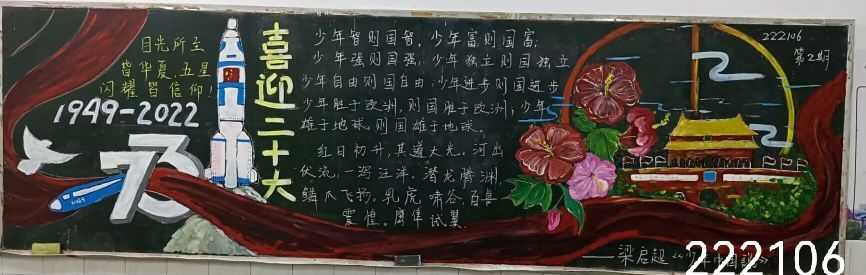 目光所至
皆华夏,五星
闪耀皆信仰!
1949-2022
73
喜迎二十大
少年智则国智,少年富则国富;
少年强则国强,少年独立则国独立
少年自由则国自由;少年进步则国进步
少年胜于欧洲,则国胜于欧洲;少年
雄于地球,则国雄于地球。
红日初升,其道大光,河出
伏流,一泻汪洋。潜龙腾渊,
鳞爪飞扬,乳虎啸谷,百兽
震惶。鹰隼试翼
222106
第2期
——梁启超《少年中国說》
222106